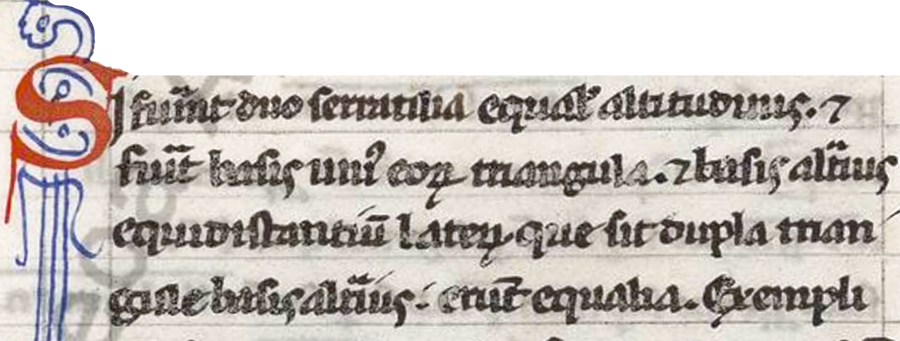 SI fueꝛint duo serratilia equal᷒ altitudinis. ⁊
fueꝛit basis uniꝰ eoꝝ triangula. ⁊ basis alt̾ius
equidistantiū lateꝝ que sit dupla trian
gule basis alt̾ius: erūt equalia. Exempli